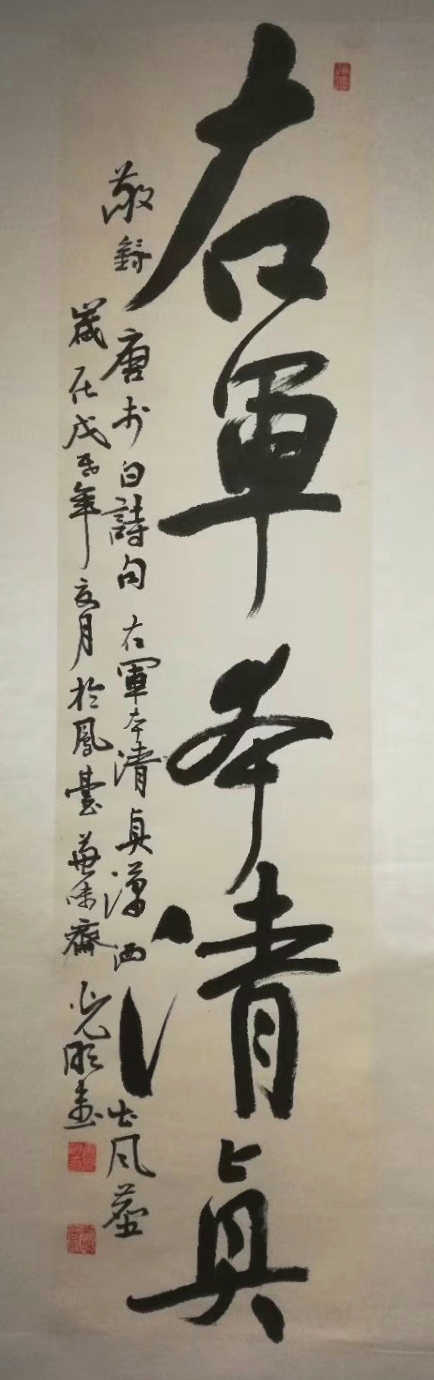 右軍本清真
敬錄唐李白詩句右軍本清真瀟洒出風塵
歲在戊子年月於鳳臺味齋光明書